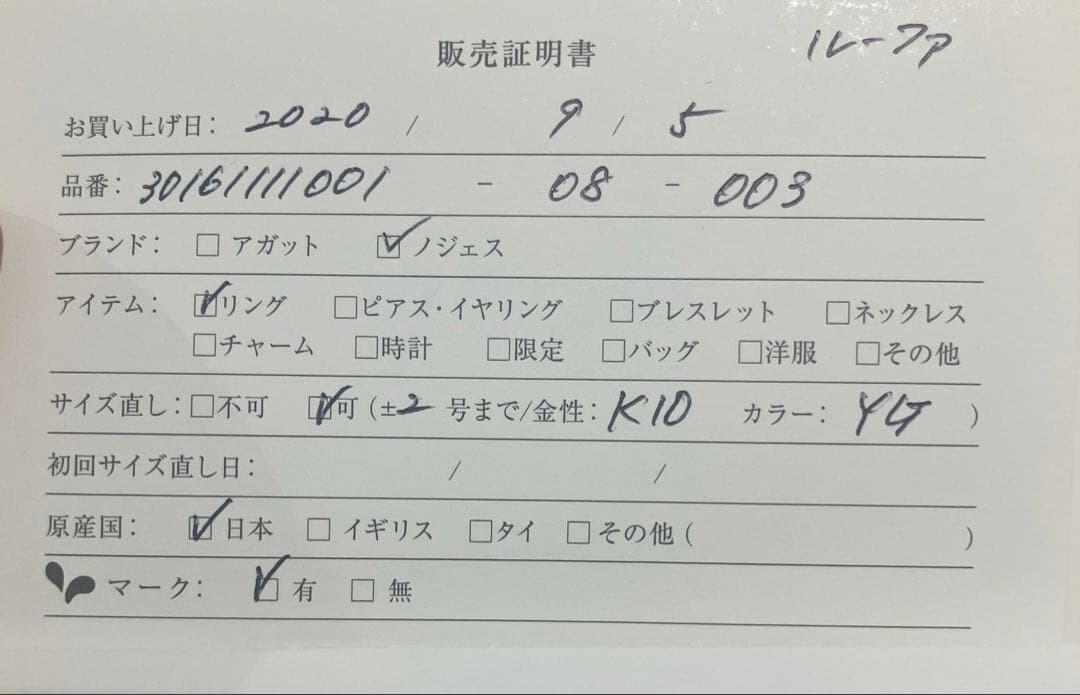 ルーファ
販売証明書
お買い上げ日： 2020 / 9 / 5
品番： 30161111001 - 08 - 003
ブランド： □ アガット ☑ ノジェス
アイテム： ☑リング □ピアス・イヤリング □ブレスレット □ネックレス
□チャーム □時計 □限定 □バッグ □洋服 □その他
サイズ直し：□不可 ☑可（±2 号まで/金性：K10 カラー： YG ）
初回サイズ直し日： / /
原産国： ☑日本 □ イギリス □タイ □その他（ ）
マーク： ☑ 有 □ 無